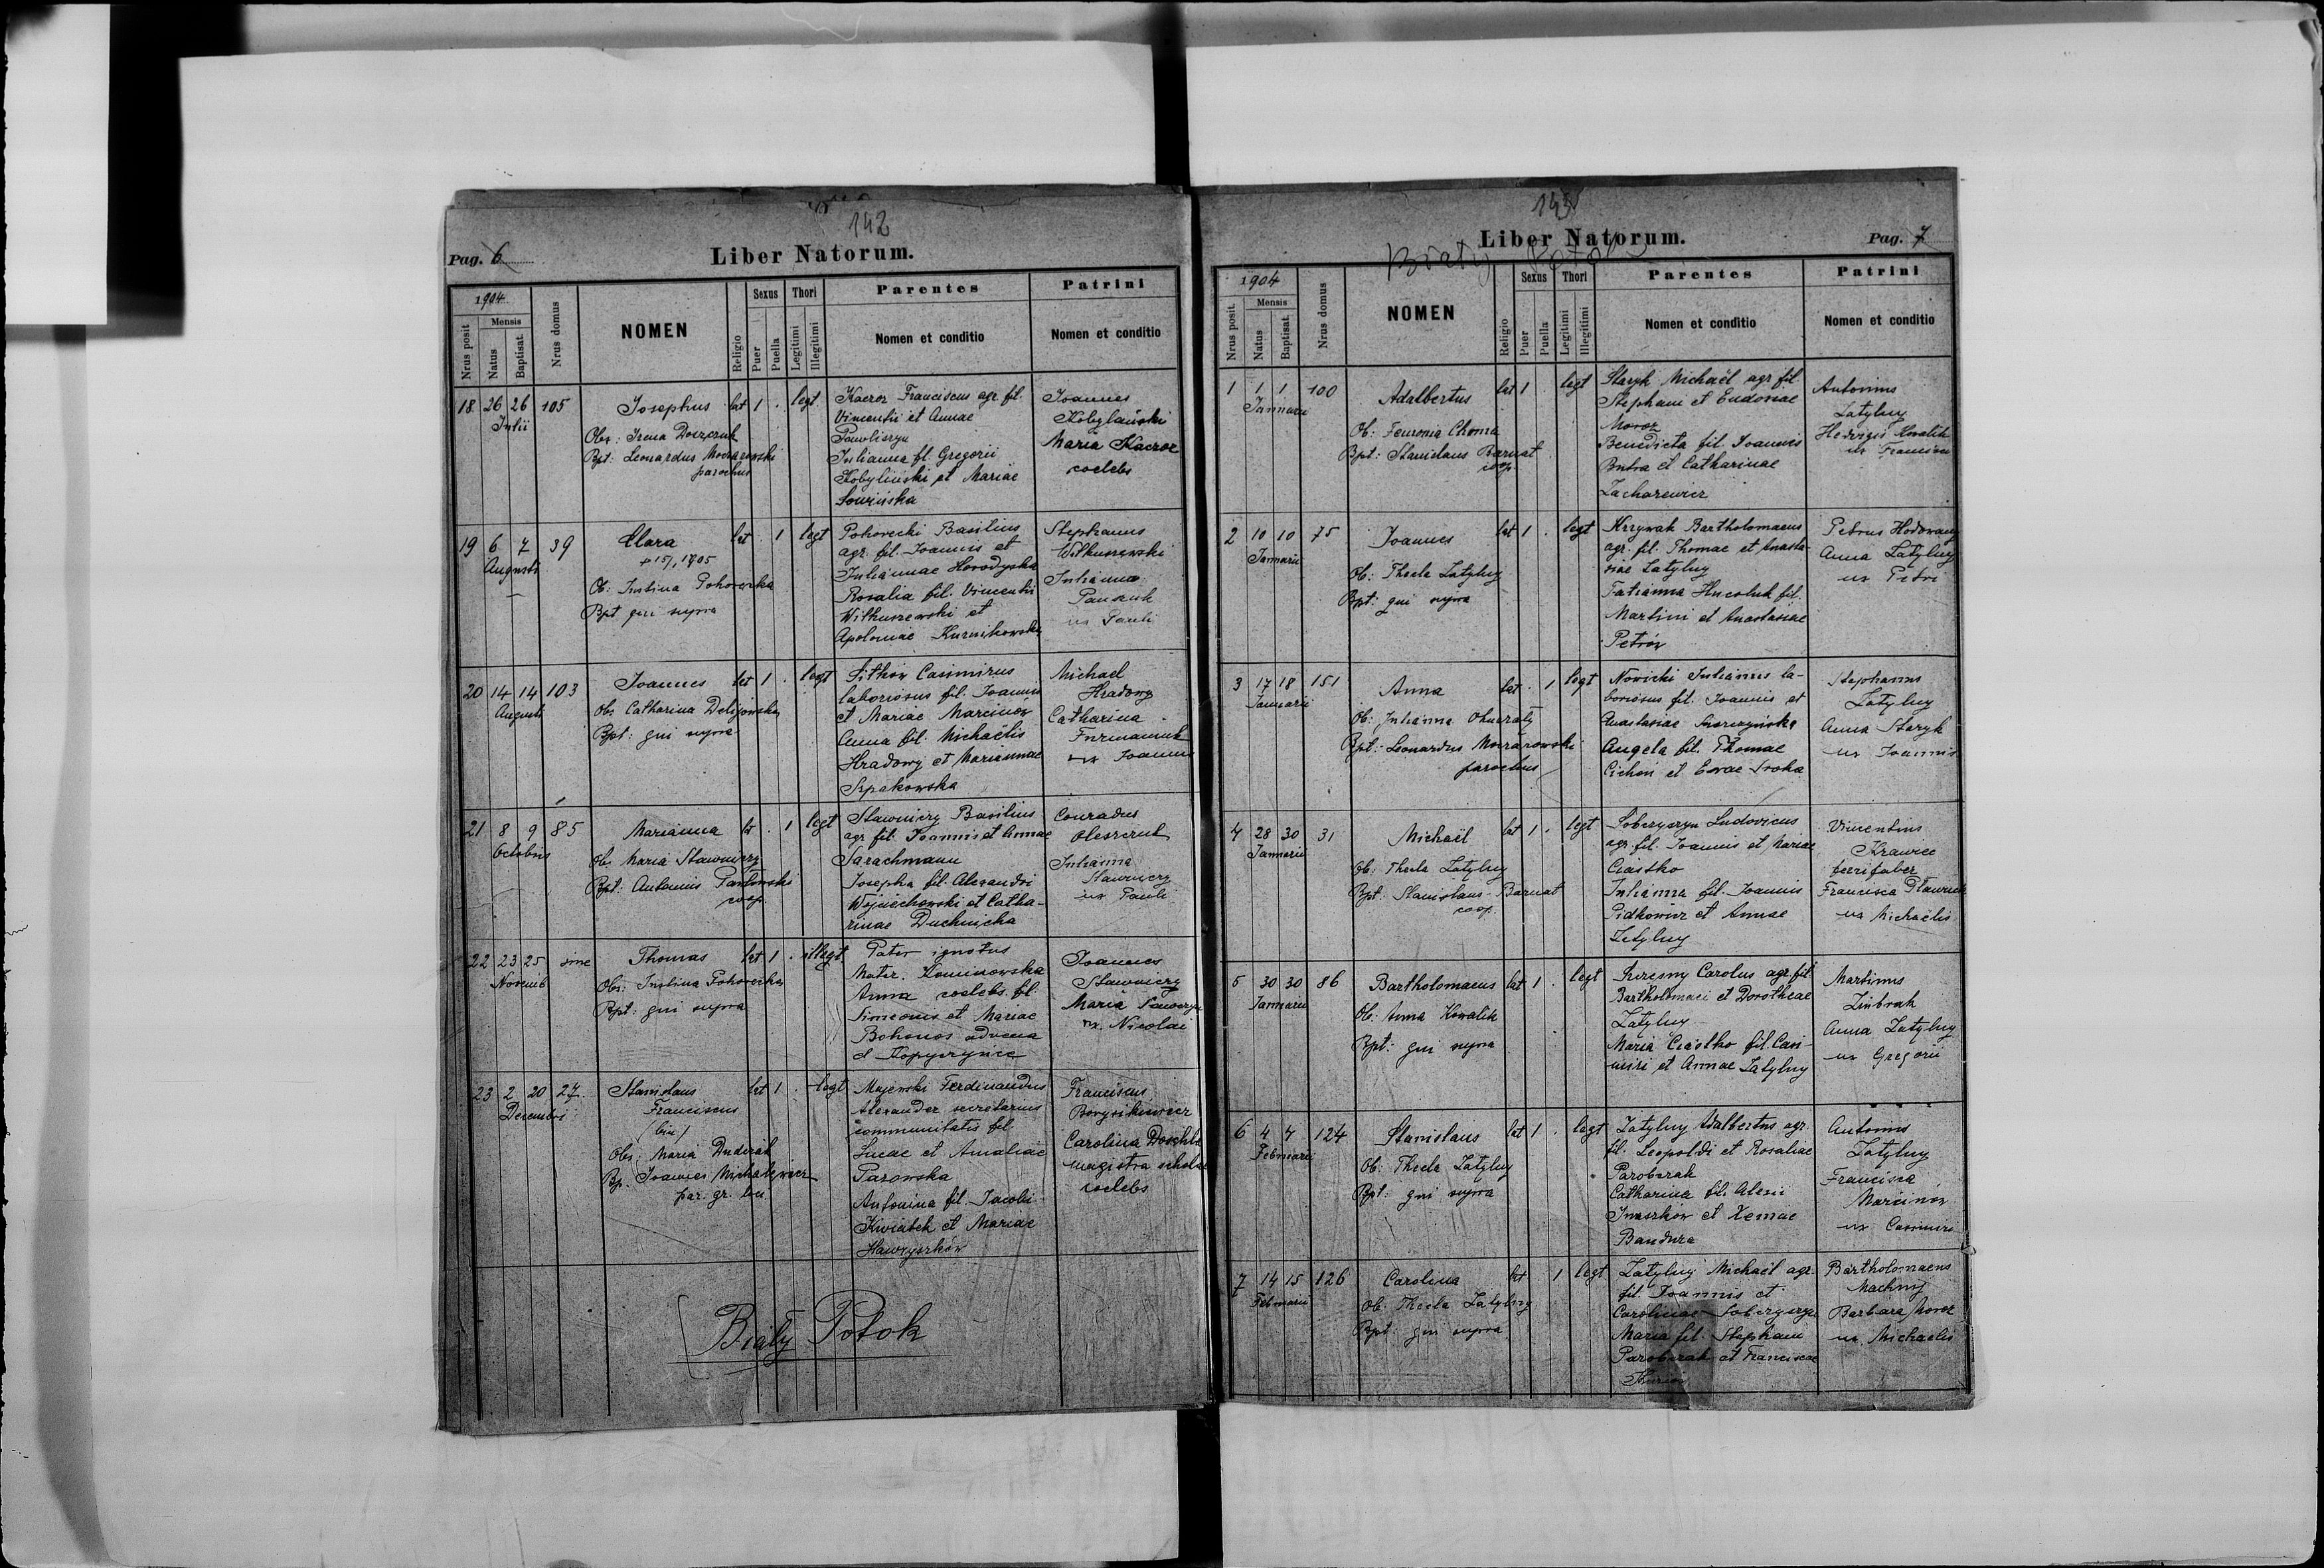 142
Pag. 6
Liber Natorum.
1904
Nrus posit
Mensis
Natus
Baptisat.
Nrus domus
NOMEN
Religio
Sexus
Puer
Puella
Thori
Legitimi
Illegitimi
Parentes
Nomen et conditio
Patrini
Nomen et conditio
18 26 26 105 Josephus lat 1 . legt
Julii
Obs: Irena
Bpt: Leonardus
parochus
Kaczor Franciscus agr. fil.
Vincentii et Annae
Julianna fil. Gregorii
Kobyliński et Mariae
Joannes
Kobylański
Maria Kaczor
coelebs
19 6 7 39 Clara lat . 1 legt
Augusti
Ob: Justina Pohorecka
Bpt qui supra
Pohorecki Basilius
agr. fil. Joannis et
Juliannae Horodyska
Rosalia fil. Vincentii
Witkuszewski et
Apoloniae
Stephanus
Witkuszewski
Julianna
Panczuk
ux Pauli
20 14 14 103 Joannes lat 1 . legt
Augusti
Obs Catharina
Bpt: qui supra
Sitkow Casimirus
laboriosus fil. Joannis
et Mariae Marcinow
Anna fil. Michaelis
Hradowy et Mariannae
Szpakowska
Michael
Hradowy
Catharina
Furmaniuk
ux Joannis
21 8 9 85 Marianna lat . 1 legt
Octobris
Obs Maria Stawniczy
Bpt: Antonius Pawłowski
coop.
Stawniczy Basilius
agr fil. Joannis et Annae
Sarachmann
Josepha fil. Alexandri
Wojciechowski et Catha-
rinae Duchnicka
Conradus
Oleszczuk
Julianna
Stawniczy
ux Pauli
22 23 25 sine Thomas lat 1 . illegt
Novemb
Obs: Justina Pohorecka
Bpt: qui supra
Pater ignotus
Mater. Kominowska
Anna coelebs. fil.
Simeonis et Mariae
Bohonos advena
Joannes
Stawniczy
Maria
ux. Nicolai
23 2 20 27 Stanislaus lat 1 . legt
Decembri
Franciscus
(bin)
Obs: Maria Duderak
Bp. Joannes Michalewicz
par. gr.
Majewski Ferdinandus
Alexander secretarius
communitatis fil
Lucae et Amaliae
Parowska
Antonina fil. Jacobi
Kwiatek et Mariae
Hawryszków
Franciscus
Borysikiewicz
Carolina
magistra scholae
coelebs
Biały Potok
143
Liber Natorum.
Pag. 7
Biały Potok
1904
Nrus posit.
Mensis
Natus
Baptisat.
Nrus domus
NOMEN
Religio
Sexus
Puer
Puella
Thori
Legitimi
Illegitimi
Parentes
Nomen et conditio
Patrini
Nomen et conditio
1 1 1 100 Adalbertus lat 1 . legt
Januarii
Ob: Feuronia Choma
Bpt: Stanislaus Barnat
coop.
Staryk Michaël agr fil
Stephani et Eudoxiae
Moroz
Benedicta fil. Joannis
Butra et Catharinae
Zacharewicz
Antonius
Zatylny
Hedvigis Kowalik
ux Francisci
2 10 10 75 Joannes lat 1 . legt
Januarii
Ob: Thecla Zatylny
Bpt: qui supra
Krzywak Bartholomaeus
agr. fil. Thomae et Anasta-
siae Zatylny
Tatianna Hucaluk fil.
Martini et Anastasiae
Petrów
Petrus Hodowany
Anna Zatylny
ux Petri
3 17 18 151 Anna lat . 1 legt
Januarii
Ob: Julianna
Bpt: Leonardus
parochus
Nowicki Julianus la-
boriosus fil. Joannis et
Anastasiae
Angela fil. Thomae
Cichoń et Evae Sroka
Stephanus
Zatylny
Anna Staryk
ux Joannis
4 28 30 31 Michaël lat 1 . legt
Januarii
Ob: Thecla Zatylny
Bpt: Stanislaus Barnat
coop.
Soberyszyn Ludovicus
agr. fil. Joannis et Mariae
Ciastko
Julianna fil. Joannis
Pidkowicz et Annae
Zatylny
Vincentius
Krawiec
ferrifaber
Francisca
ux Michaëlis
5 30 30 86 Bartholomaeus lat 1 . legt
Januarii
Ob: Anna Kowalik
Bpt: qui supra
Carolus agr. fil
Bartholomaei et Dorotheae
Zatylny
Maria Ciastko fil. Casi-
miri et Annae Zatylny
Martinus
Zinbrak
Anna Zatylny
ux Gregorii
6 4 7 124 Stanislaus lat 1 . legt
Februarii
Ob: Thecla Zatylny
Bpt: qui supra
Zatylny Adalbertus agr.
fil. Leopoldi et Rosaliae
Paroberak
Catharina fil. Alexii
Iwaszków et Xeniae
Bandura
Antonius
Zatylny
Francisca
Marcinów
ux Casimiri
7 14 15 126 Carolina lat . 1 legt
Februarii
Ob: Thecla Zatylny
Bpt: qui supra
Zatylny Michaël agr.
fil. Joannis et
Carolinae Soberyszyn
Maria fil. Stephani
Paroberak et Franciscae
Bartholomaeus
Machny
Barbara Moroz
ux. Michaelis